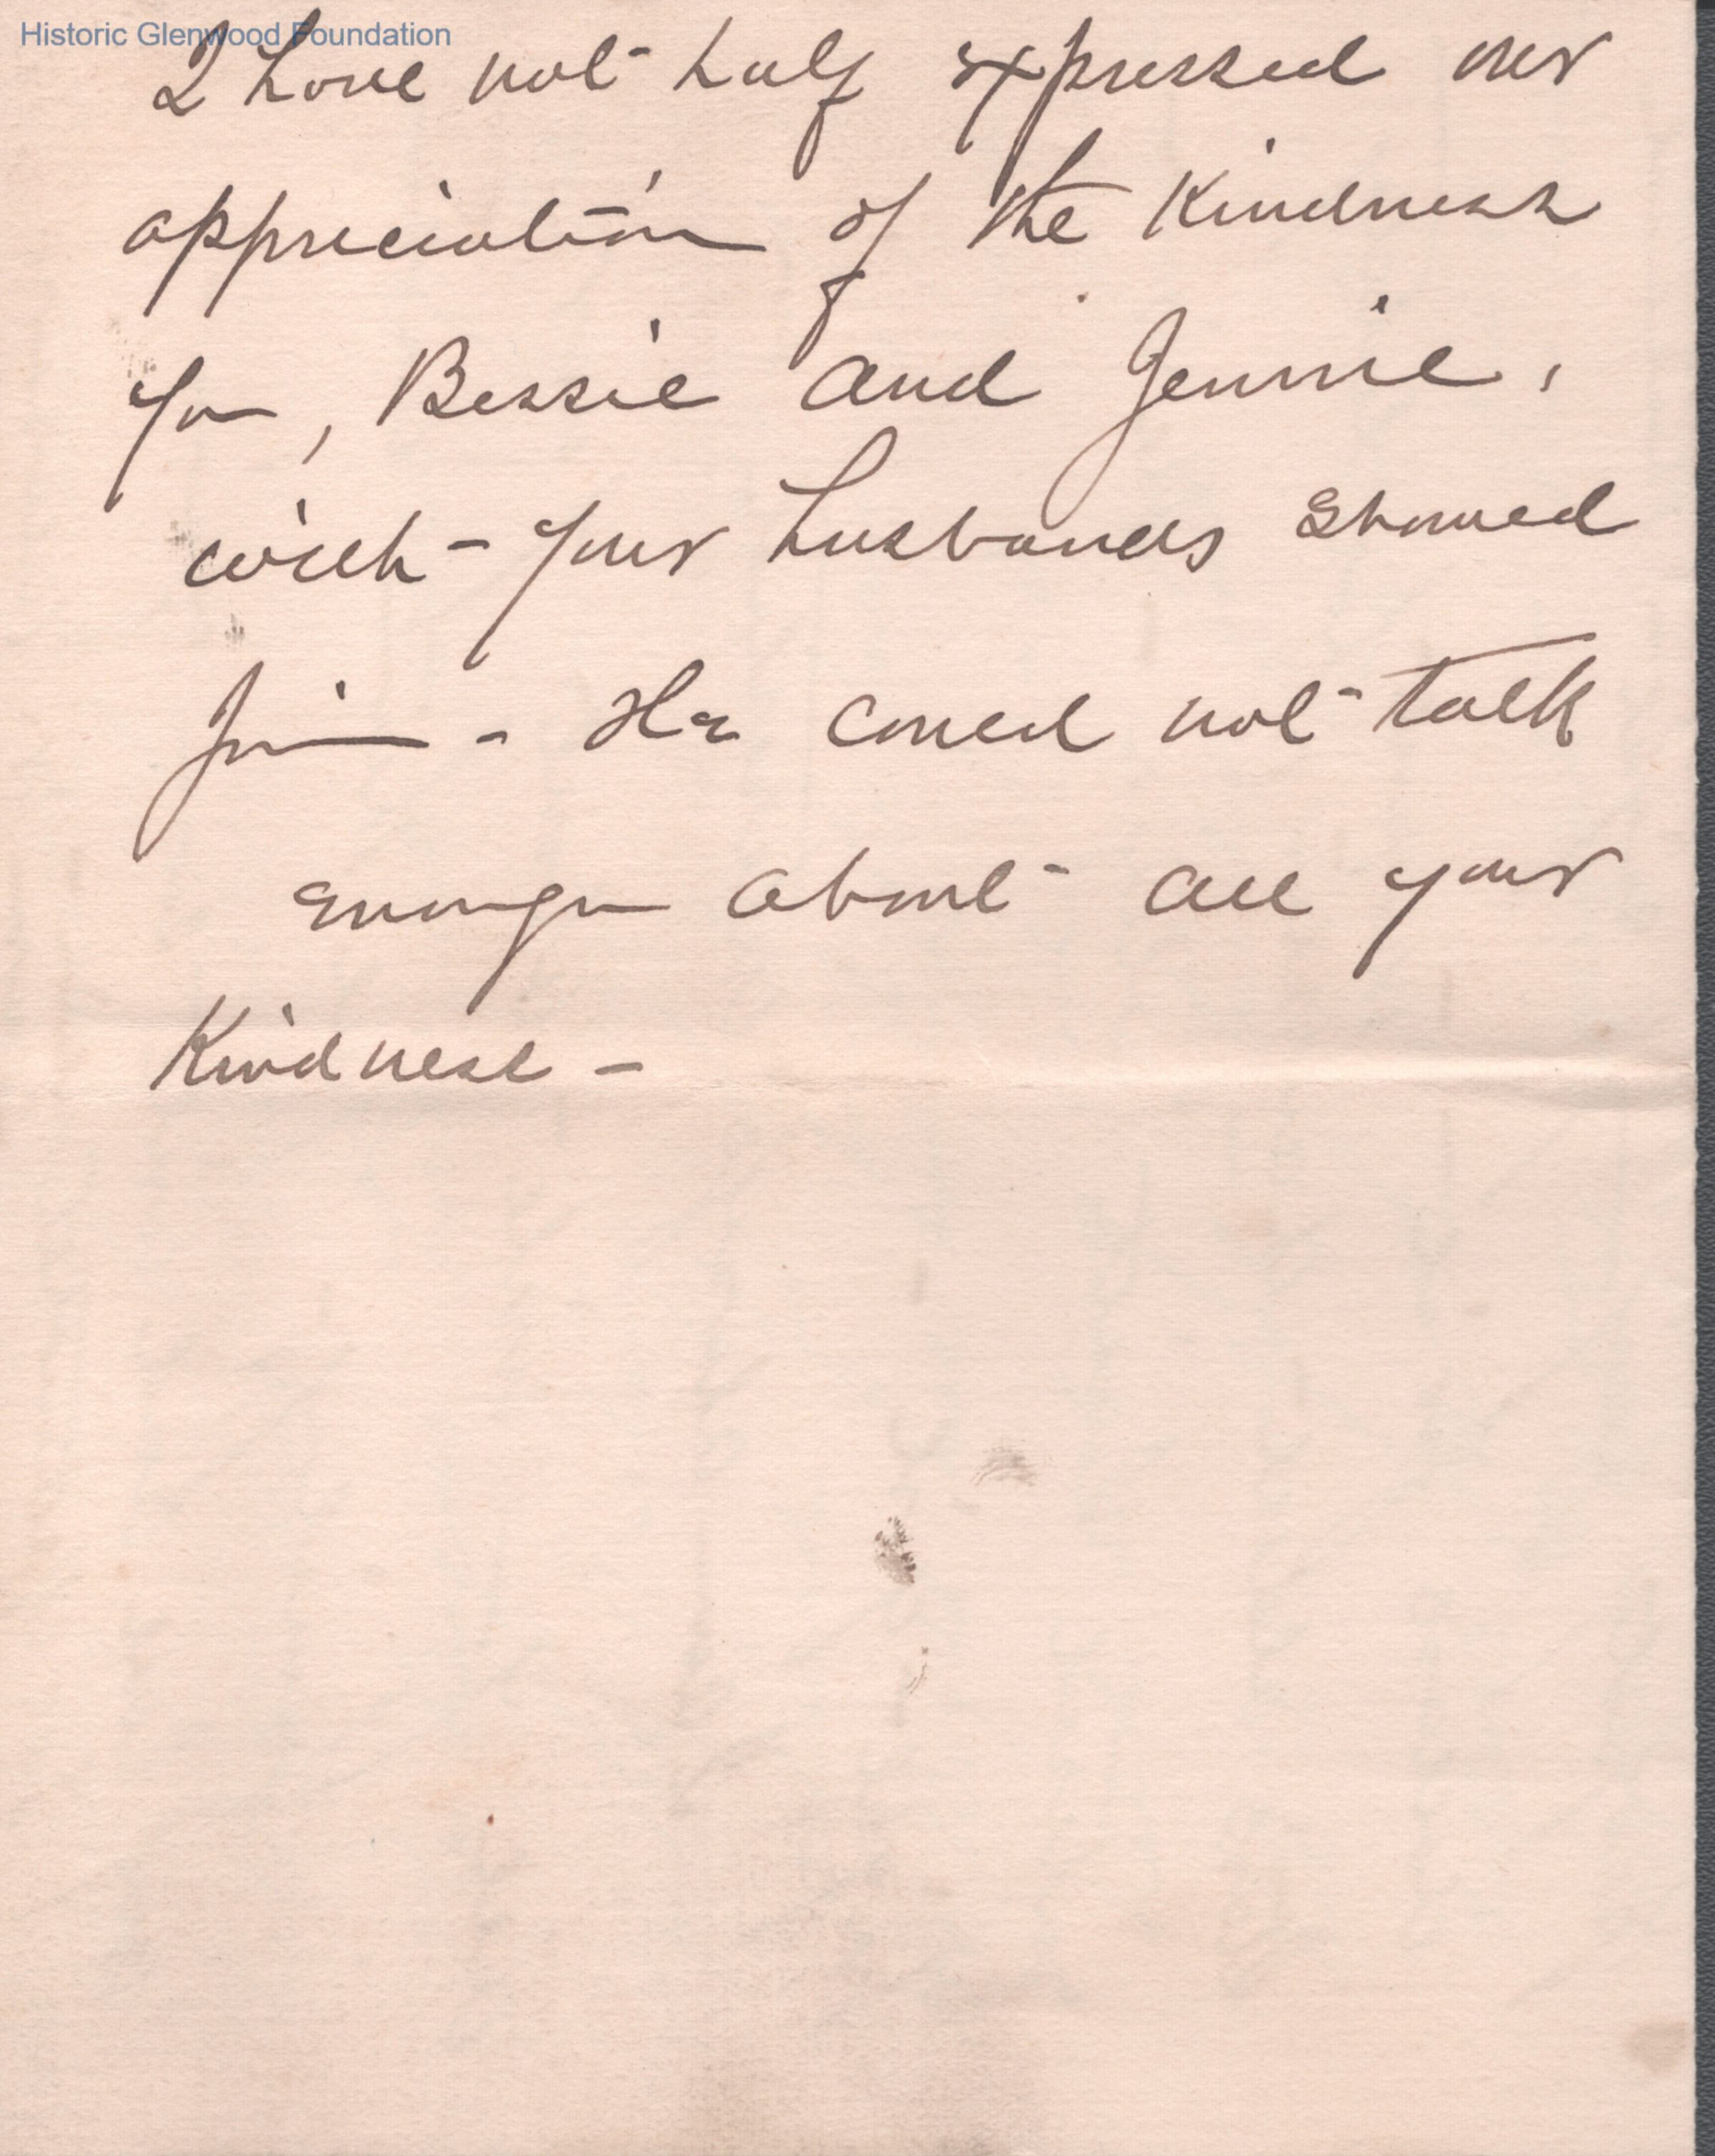 Historic Glenwood Foundation
I have not half expressed our
appreciation of the kindness
you, Bessie and Jennie,
with your husbands showed
Jim - He could not talk
enough about all your
Kindness -